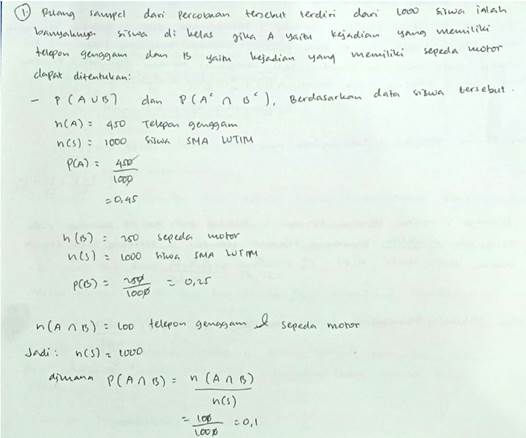 ① Ruang sampel dari percobaan tersebut terdiri dari 1000 siswa ialah
banyaknya siswa di kelas jika A yaitu kejadian yang memiliki
telepon genggam dan B yaitu kejadian yang memiliki sepeda motor
dapat ditentukan:
- P(A∪B) dan P(Aᶜ ∩ Bᶜ), Berdasarkan data siswa tersebut.
n(A) = 450 telepon genggam
n(S) = 1000 siswa SMA LUTIM
P(A) = 450/1000
= 0,45
n(B) = 250 sepeda motor
n(S) = 1000 siswa SMA LUTIM
P(B) = 250/1000 = 0,25
n(A ∩ B) = 100 telepon genggam & sepeda motor
Jadi : n(S) = 1000
dimana P(A ∩ B) = n(A ∩ B)/n(S)
= 100/1000 = 0,1